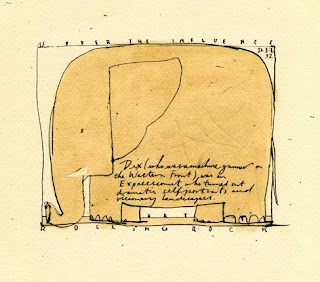 UNDER THE INFLUENCE
92
Dix (who was a machine gunner on
the Western Front), was an
Expressionist who turned out
dramatic self portraits, and
visionary landscapes.
ART
ROLLING ROCK